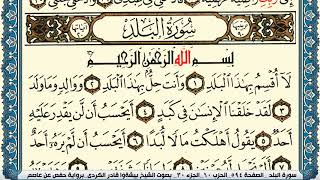 سُورَةُ الْبَلَدِ
بِسْمِ اللَّهِ الرَّحْمَٰنِ الرَّحِيمِ
لَا أُقْسِمُ بِهَٰذَا الْبَلَدِ ١ وَأَنتَ حِلٌّ بِهَٰذَا الْبَلَدِ ٢ وَوَالِدٍ وَمَا وَلَدَ
٣ لَقَدْ خَلَقْنَا الْإِنسَٰنَ فِي كَبَدٍ ٤ أَيَحْسَبُ أَن لَّن يَقْدِرَ عَلَيْهِ
أَحَدٌ ٥ يَقُولُ أَهْلَكْتُ مَالًا لُّبَدًا ٦ أَيَحْسَبُ أَن لَّمْ يَرَهُ أَحَدٌ
سورة البلد الصفحة ٥٩٤ الحزب ٦٠ الجزء ٣٠ بصوت الشيخ بيشةوا قادر الكردي برواية حفص عن عاصم